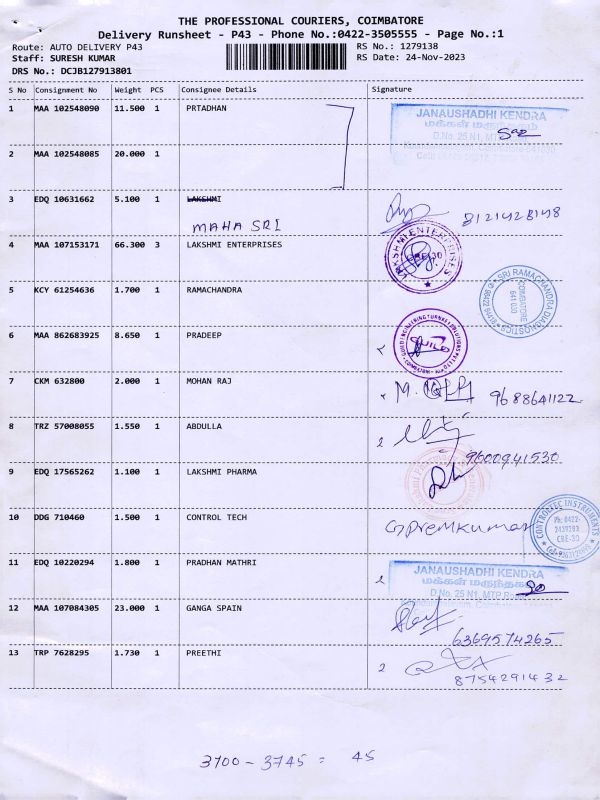 THE PROFESSIONAL COURIERS, COIMBATORE
Delivery Runsheet - P43 - Phone No.:0422-3505555 - Page No.:1
Route: AUTO DELIVERY P43 RS No.: 1279138
Staff: SURESH KUMAR RS Date: 24-Nov-2023
DRS No.: DCJB127913801
S No Consignment No Weight PCS Consignee Details Signature
1 MAA 102548090 11.500 1 PRTADHAN
JANAUSHADHI KENDRA
மக்கள் மருந்தகம்
D.No. 25 N1, MTP
2 MAA 102548085 20.000 1
3 EDQ 10631662 5.100 1 LAKSHMI
MAHA SRI 8121428148
4 MAA 107153171 66.300 3 LAKSHMI ENTERPRISES
LAKSHMI ENTERPRISES
5 KCY 61254636 1.700 1 RAMACHANDRA
SRI RAMACHANDRA DIAGNOSTICS
COIMBATORE
641 030
6 MAA 862683925 8.650 1 PRADEEP
7 CKM 632800 2.000 1 MOHAN RAJ
9688641122
8 TRZ 57008055 1.550 1 ABDULLA
9600941530
9 EDQ 17565262 1.100 1 LAKSHMI PHARMA
10 DDG 710460 1.500 1 CONTROL TECH
G Premkumar
CONTROLTEC INSTRUMENTS
Ph: 0422-
CBE-30
11 EDQ 10220294 1.800 1 PRADHAN MATHRI
JANAUSHADHI KENDRA
மக்கள் மருந்தகம்
D.No. 25 N1, MTP Road
12 MAA 107084305 23.000 1 GANGA SPAIN
6369574265
13 TRP 7628295 1.730 1 PREETHI
8754291432
3700 - 3745 = 45